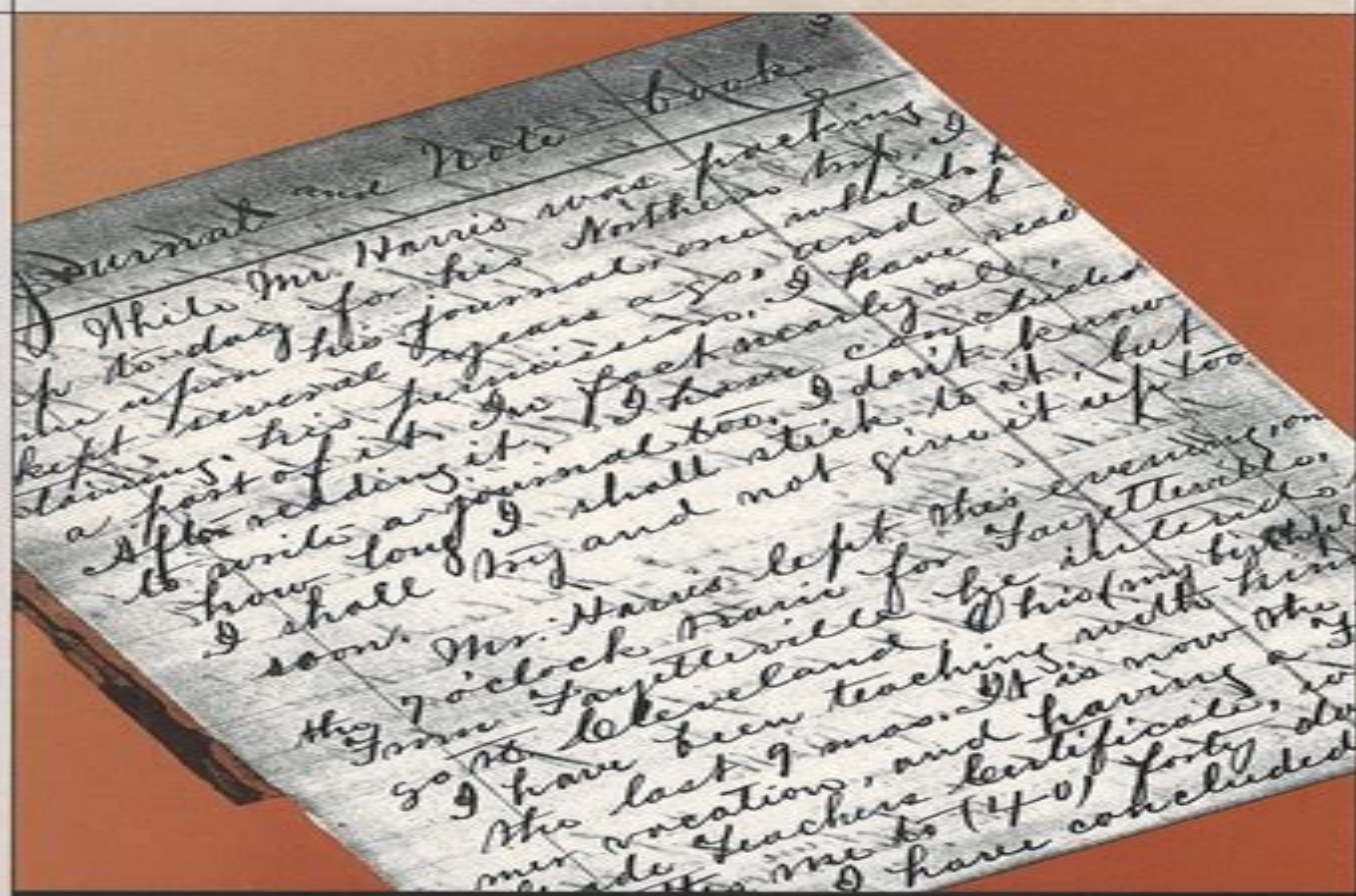 3
Journal and Note book.
While Mr. Harris was packing
up to-day for his Northern trip, I
upon his journal, one which h
kept several years ago, and ob-
taining his permission, I have read
a part of it. In fact nearly all.
After reading it, I have concluded
to write a journal too. I don't know
how long I shall stick to it, but
I shall try and not give it up too
soon.
Mr. Harris left this evening, on
the 7 o'clock train for Fayetteville,
From Fayetteville he intends
go to Cleveland O his (my birthpl
I have been teaching with him
the last 9 mos. It is now the
mer vacation, and having a 1
Grade Teachers Certificate,
me to (40) forty do
I have concluded